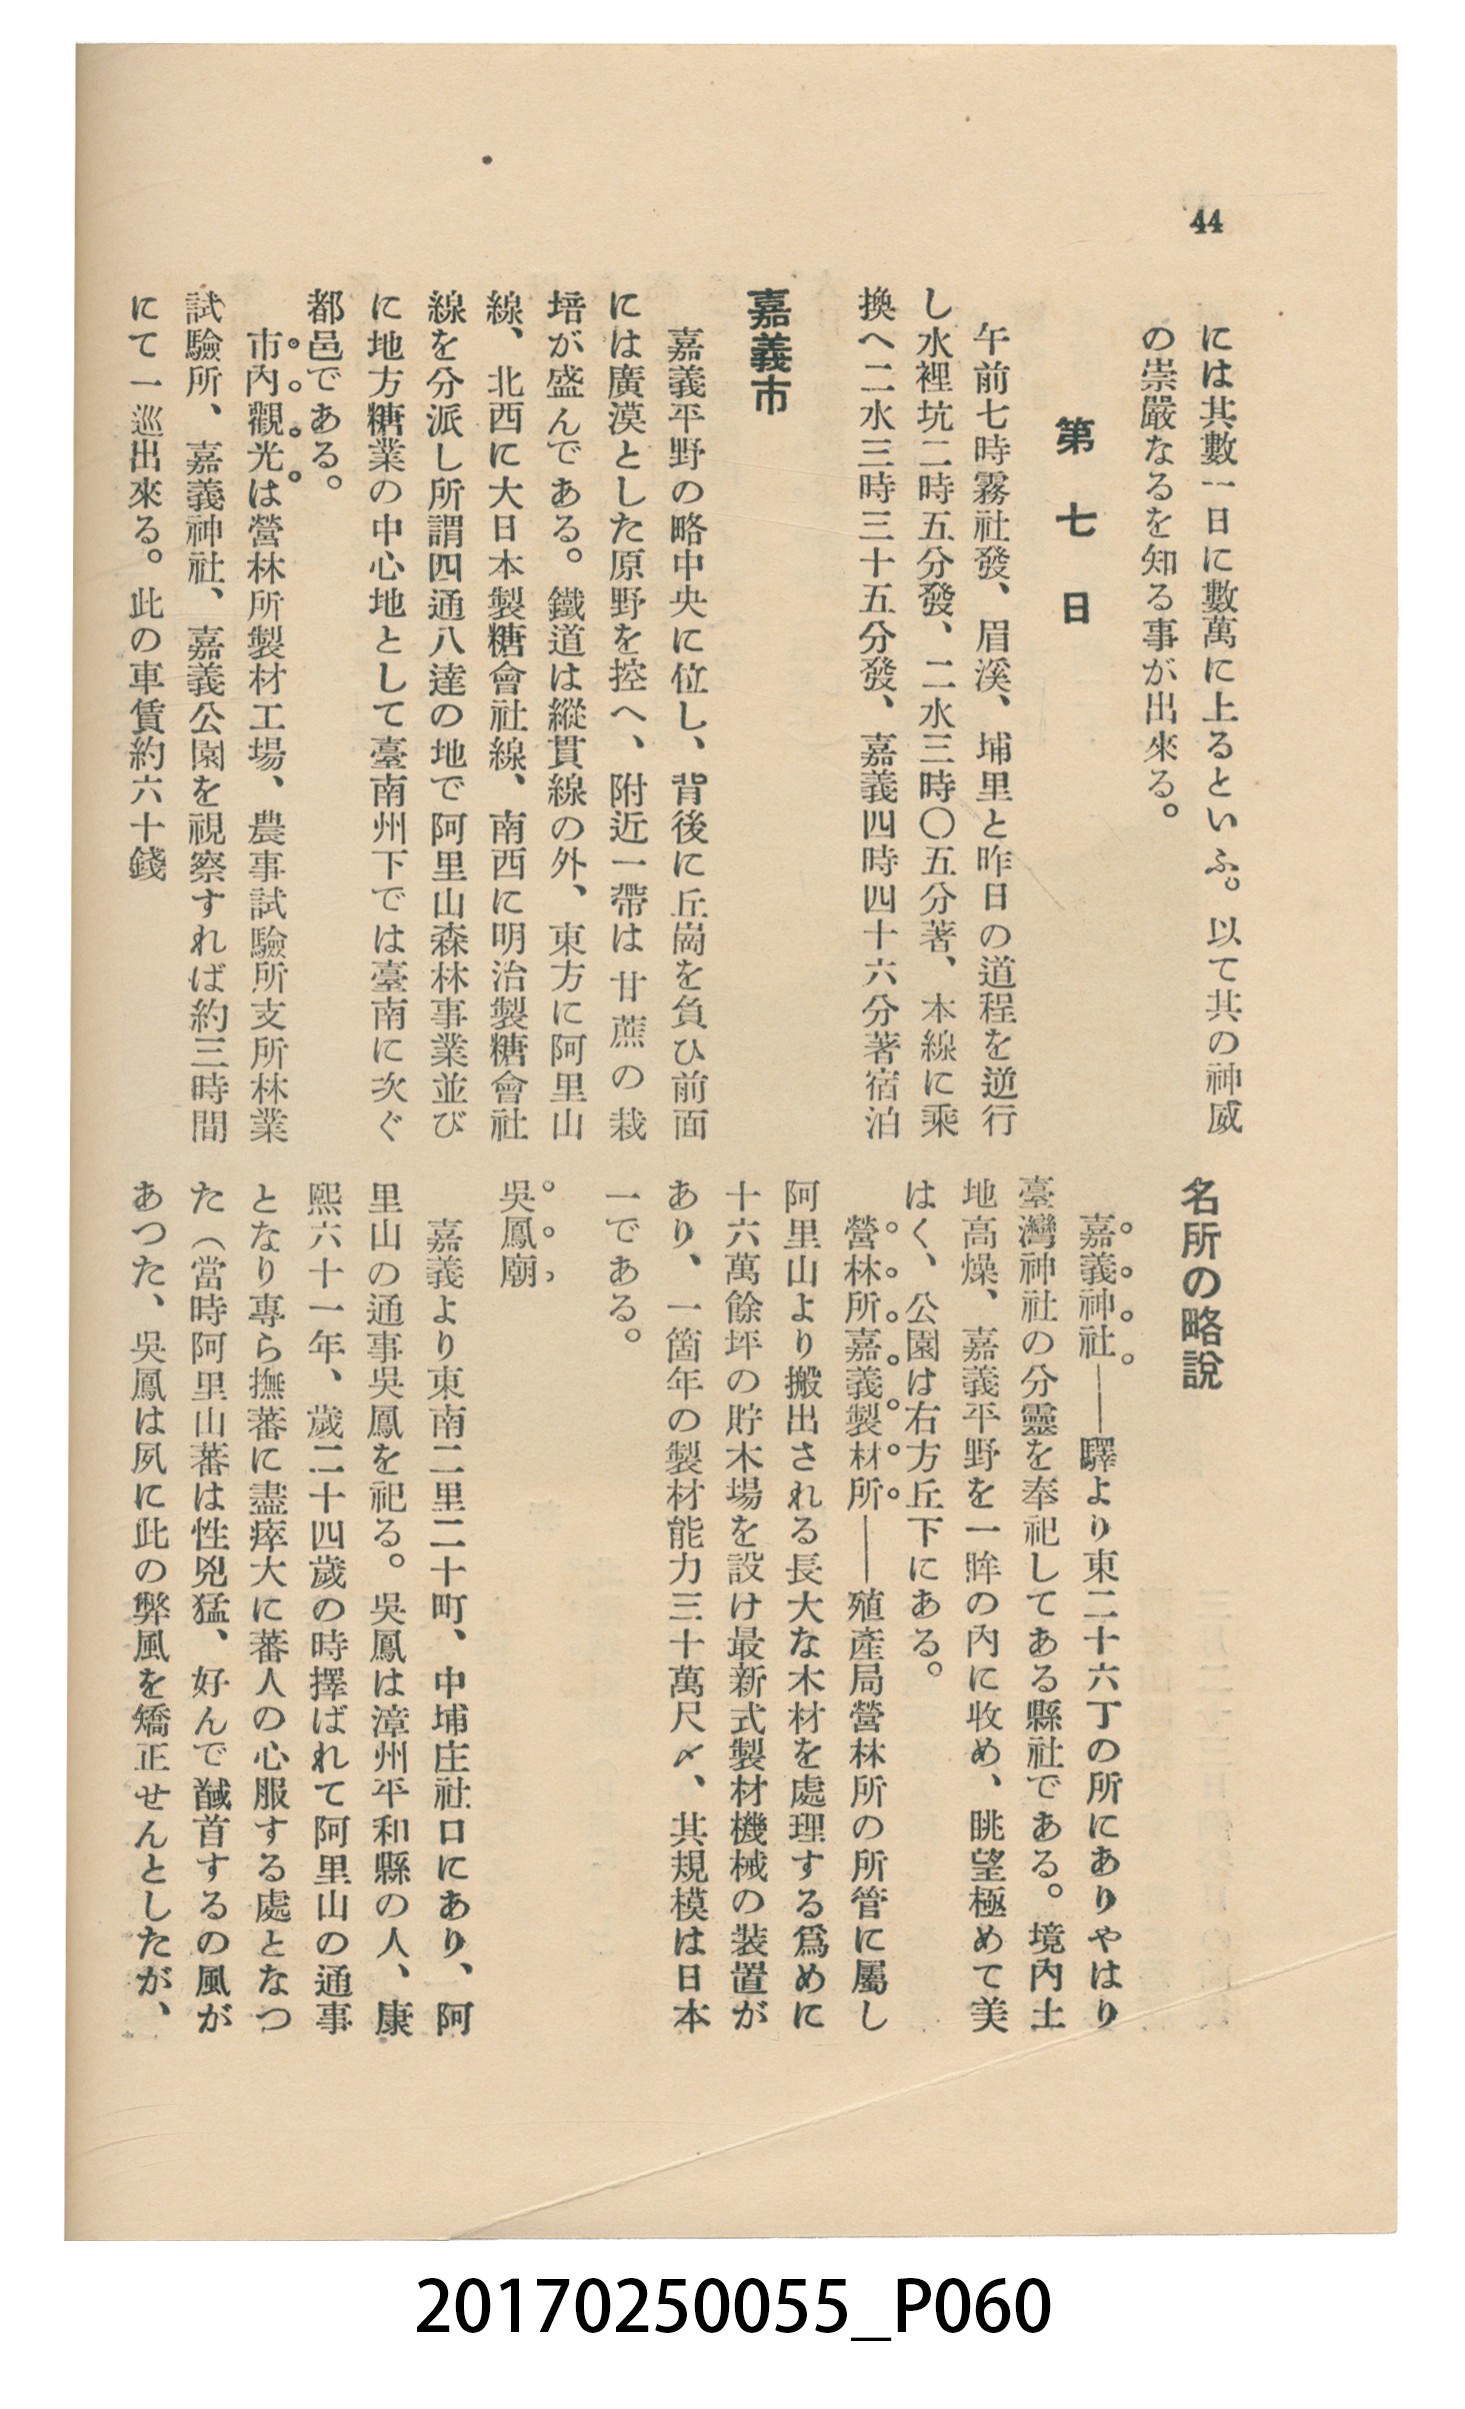 44
には其數一日に數萬に上るといふ。以て其の神威
の崇嚴なるを知る事が出來る。
第七日
午前七時霧社發、眉溪、埔里と昨日の道程を逆行
し水裡坑二時五分發、二水三時〇五分著、本線に乘
換へ二水三時三十五分發、嘉義四時四十六分著宿泊
嘉義市
嘉義平野の略中央に位し、背後に丘崗を負ひ前面
には廣漠とした原野を控へ、附近一帶は甘蔗の栽
培が盛んである。鐵道は縱貫線の外、東方に阿里山
線、北西に大日本製糖會社線、南西に明治製糖會社
線を分派し所謂四通八達の地で阿里山森林事業並び
に地方糖業の中心地として臺南州下では臺南に次ぐ
都邑である。
市內觀光は營林所製材工場、農事試驗所支所林業
試驗所、嘉義神社、嘉義公園を視察すれば約三時間
にて一巡出來る。此の車賃約六十錢
名所の略說
嘉義神社――驛より東二十六丁の所にありやはり
臺灣神社の分靈を奉祀してある縣社である。境內土
地高燥、嘉義平野を一眸の內に收め、眺望極めて美
はく、公園は右方丘下にある。
營林所嘉義製材所――殖產局營林所の所管に屬し
阿里山より搬出される長大な木材を處理する爲めに
十六萬餘坪の貯木場を設け最新式製材機械の裝置が
あり、一箇年の製材能力三十萬尺〆、其規模は日本
一である。
吳鳳廟
嘉義より東南二里二十町、中埔庄社口にあり、阿
里山の通事吳鳳を祀る。吳鳳は漳州平和縣の人、康
熙六十一年、歲二十四歲の時擇ばれて阿里山の通事
となり專ら撫蕃に盡瘁大に蕃人の心服する處となつ
た（當時阿里山蕃は性兇猛、好んで馘首するの風が
あつた、吳鳳は夙に此の弊風を矯正せんとしたが、
20170250055_P060